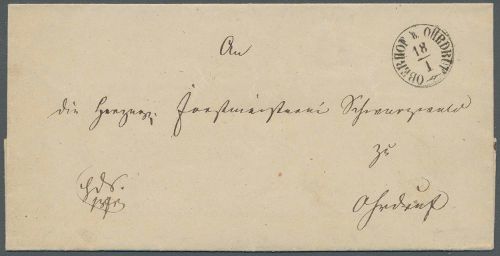 OBERHOF b. OHRDRUF
18/1
An
die Herzogl. Forstmeisterei Schwarzwald
zu
Ohrdruf